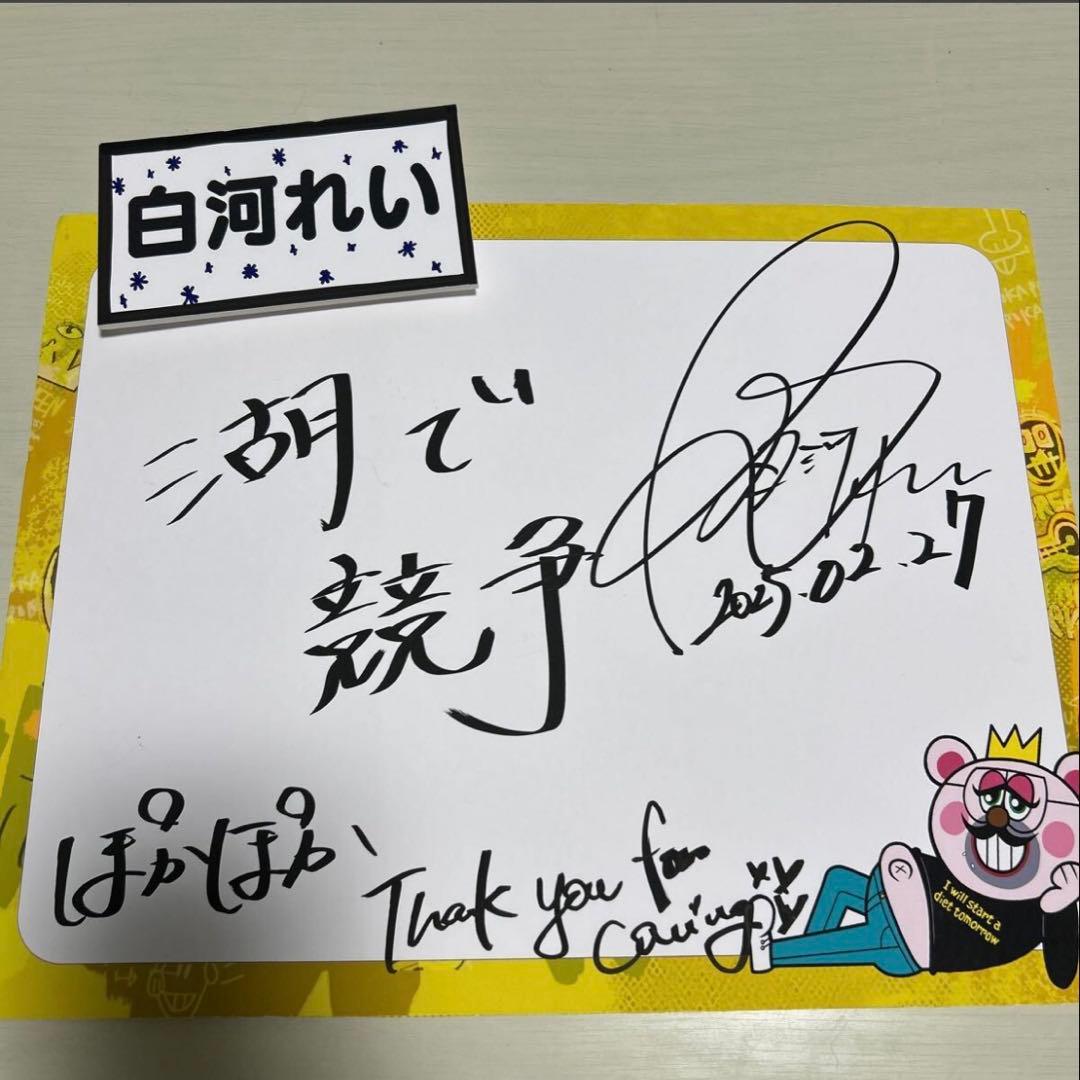 白河れい
湖で
競争
2025.02.27
ぽかぽか
Thank you for
coming
I will start a
diet tomorrow